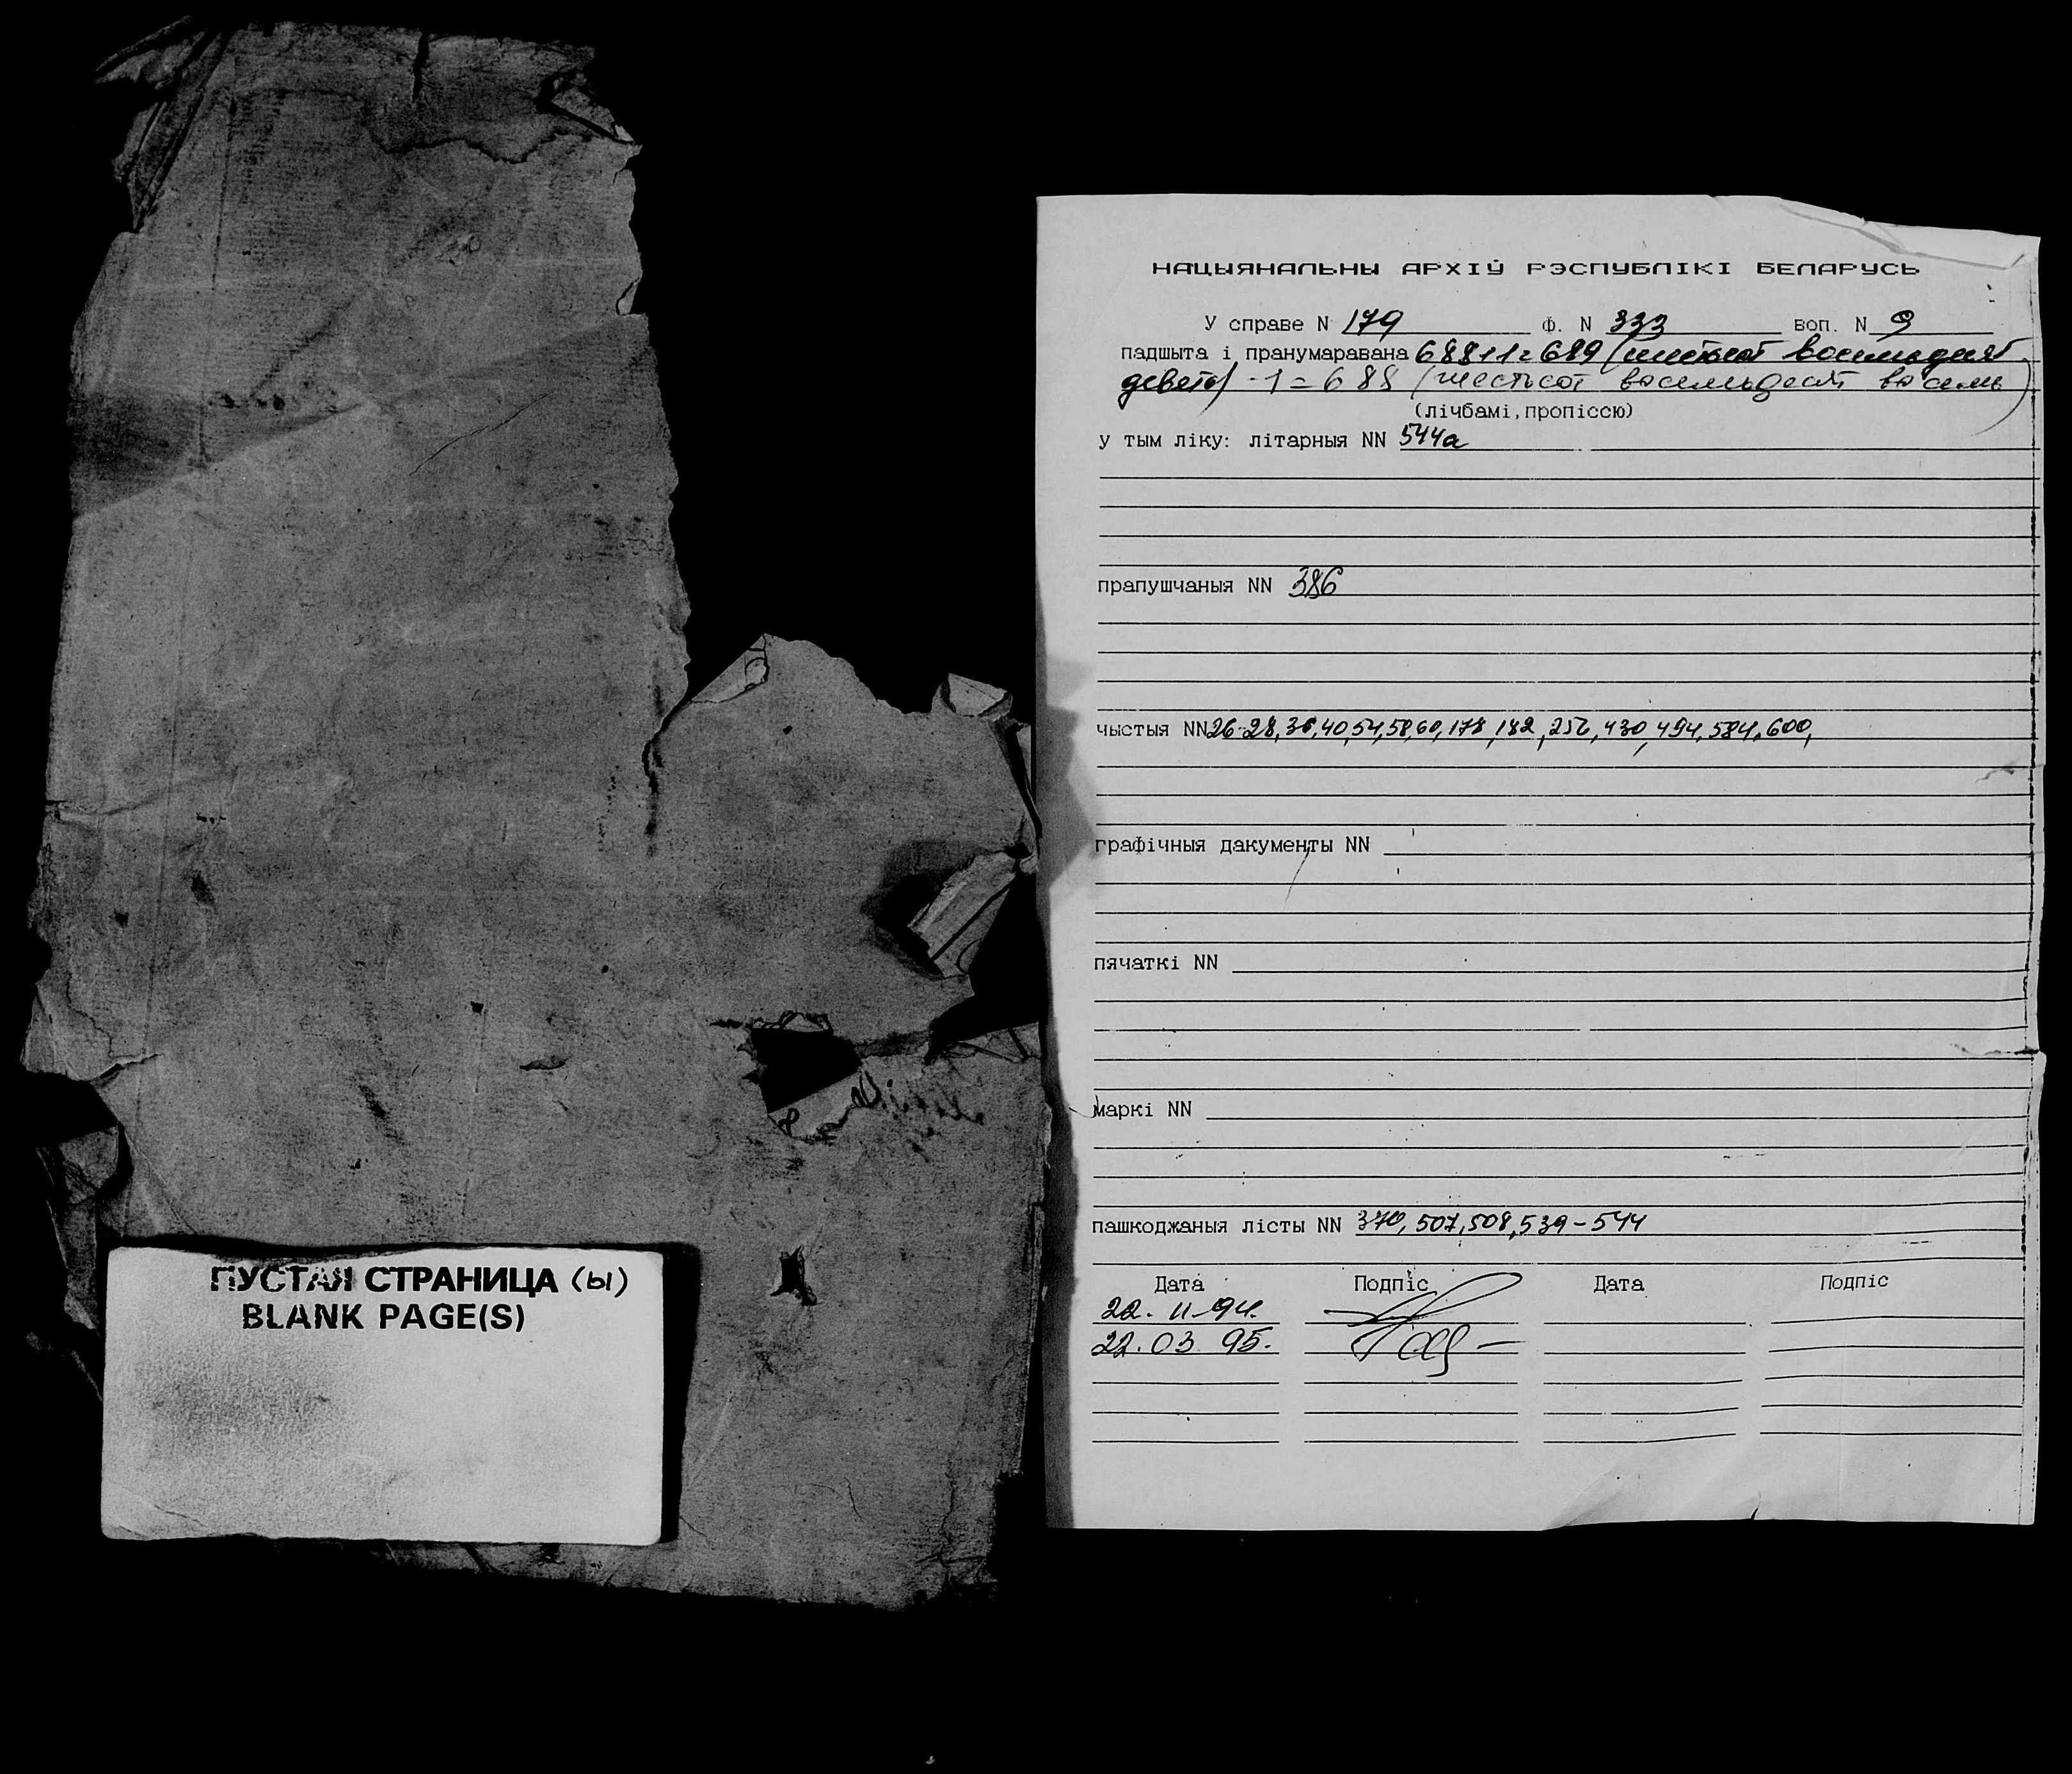 НАЦЫЯНАЛЬНЫ АРХІЎ РЭСПУБЛІКІ БЕЛАРУСЬ
У справе N 179 Ф. N 333 воп. N 9
падшыта і пранумаравана 688+1=689 (шестьсот восемьдесят
девять) -1=688 (шестьсот восемьдесят восемь)
(лічбамі,пропіссю)
у тым ліку: літарныя NN 544а
прапушчаныя NN 386
чыстыя NN 26-28,36,40,54,58,60,178,182,256,430,494,584,600,
графічныя дакументы NN
пячаткі NN
маркі NN
пашкоджаныя лісты NN 370,507,508,539-544
Дата Подпіс Дата Подпіс
22.11.94.
22.03 95.
ПУСТАЯ СТРАНИЦА (Ы)
BLANK PAGE(S)